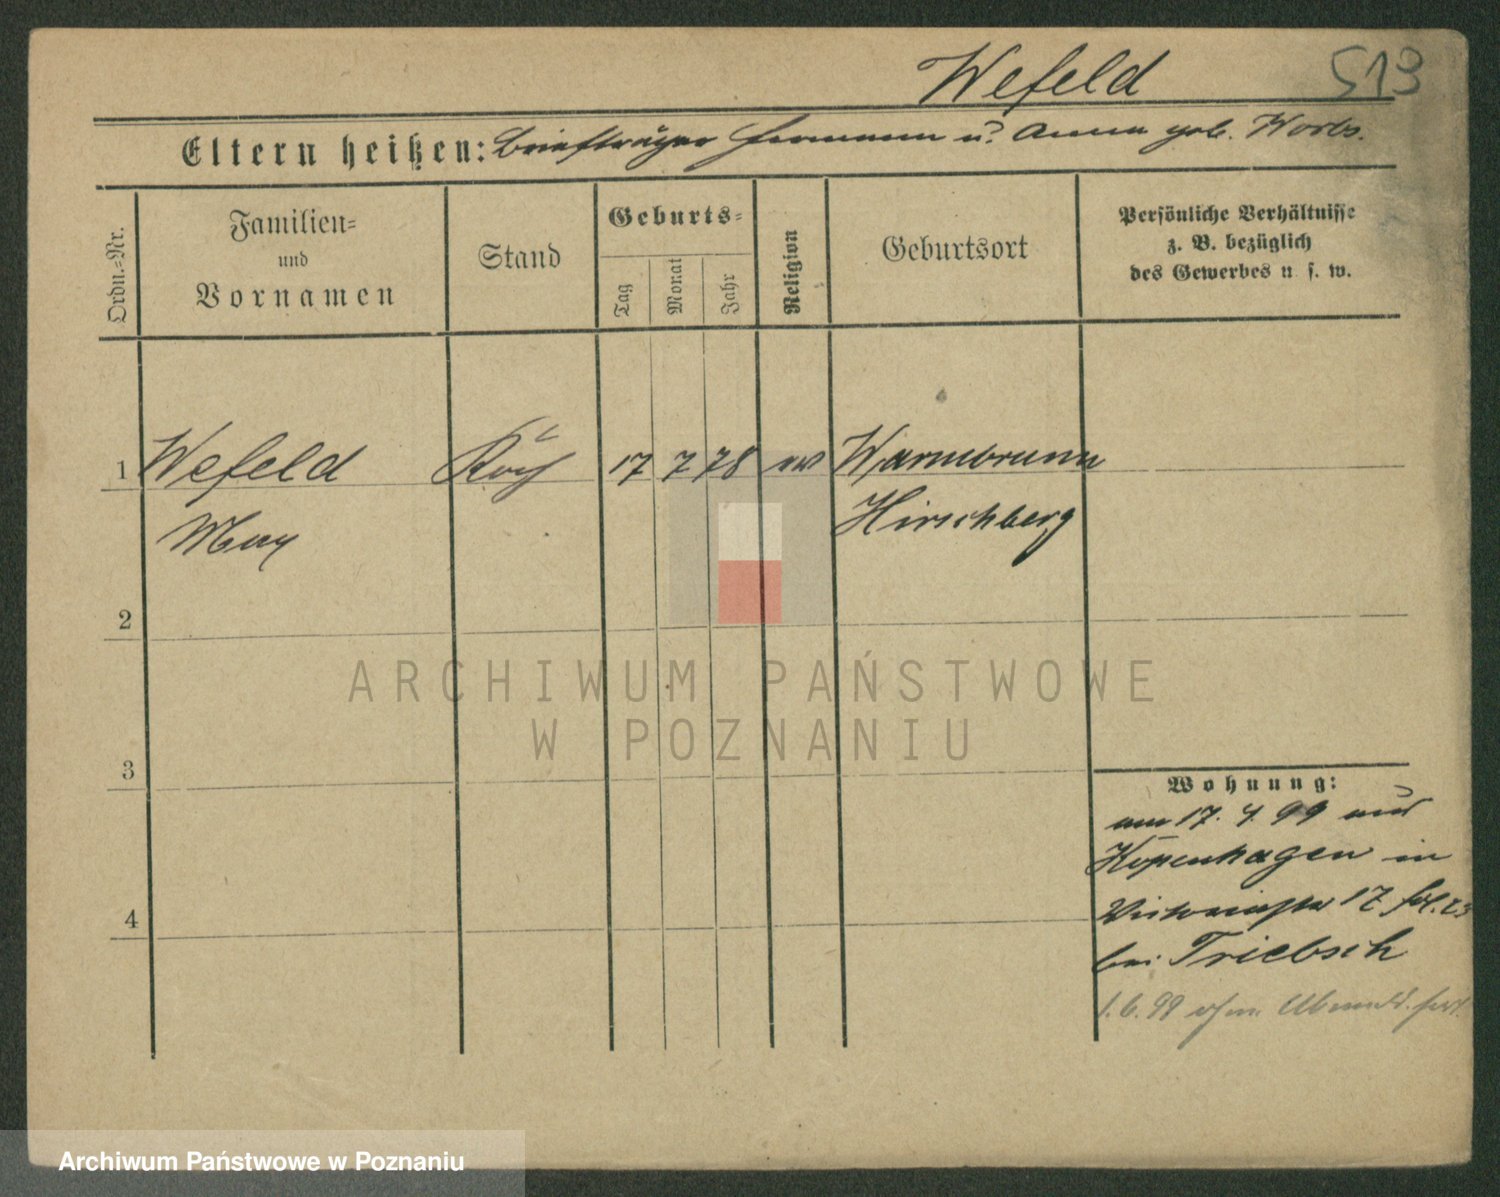 Wefeld 513
Eltern heißen: Briefträger Hermann u. Anna geb. Worbs.
Ordn.-Nr.
Familien-
und
Vornamen
Stand
Geburts-
Tag
Monat
Jahr
Religion
Geburtsort
Persönliche Verhältnisse
z. B. bezüglich
des Gewerbes u. s. w.
1 Wefeld Koch 17 7 78 ev Warmbrunn
Max Hirschberg
2
ARCHIWUM PAŃSTWOWE
W POZNANIU
3
Wohnung:
am 17. 4. 99 aus
Kopenhagen in
Victoriastr 17
4
bei Triebsch
1. 6. 99 ohne Abmeld. fort
Archiwum Państwowe w Poznaniu